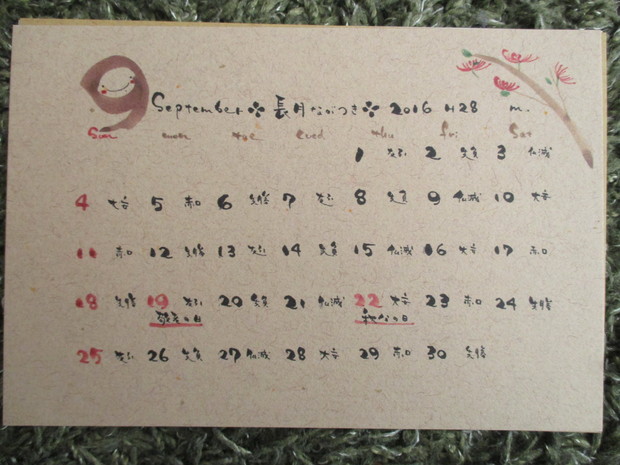 9 September ✽ 長月 ながつき ✽ 2016 H28 m.
Sun mon tue wed thu fri Sat
1 友引 2 先負 3 仏滅
4 大安 5 赤口 6 先勝 7 友引 8 先負 9 仏滅 10 大安
11 赤口 12 先勝 13 友引 14 先負 15 仏滅 16 大安 17 赤口
18 先勝 19 友引 20 先負 21 仏滅 22 大安 23 赤口 24 先勝
敬老の日 秋分の日
25 友引 26 先負 27 仏滅 28 大安 29 赤口 30 先勝